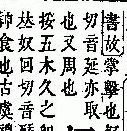 書故掌擊也
切音延亦取
也又周也
按五木久之
奴回切音
食也古虞